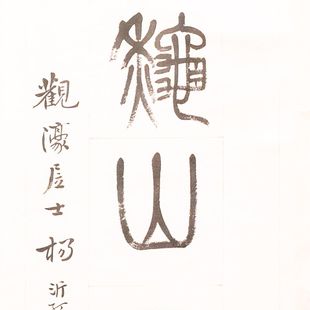 龝山
觀濠居士楊沂